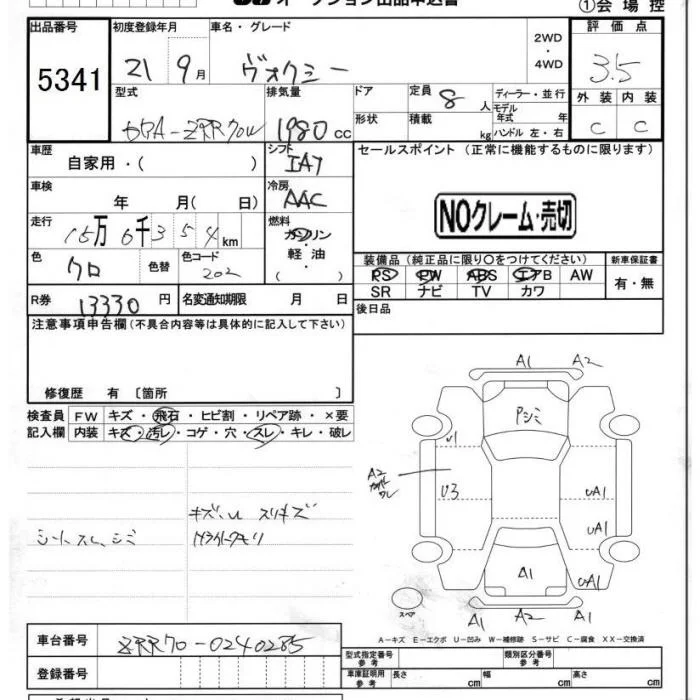 オークション出品申込書
①会場控
出品番号 初度登録年月 車名・グレード 2WD・4WD 評価点
5341 21 9月 ヴォクシー 3.5
型式 排気量 ドア 定員 8人 ディーラー・並行 外装 内装
DBA-ZRR70W 1980cc 形状 積載 kg モデル年式 年 ハンドル 左・右 C C
車歴 シフト セールスポイント(正常に機能するものに限ります)
自家用・( ) IA7
車検 冷房
年 月( 日) AAC NOクレーム・売切
走行 燃料
15万6千354km ガソリン・軽油・( )
色 色替 色コード 装備品(純正品に限り○をつけてください) 新車保証書
クロ 202 PS PW ABS エアB AW 有・無
R券 13330円 名変通知期限 月 日 SR ナビ TV カワ
注意事項申告欄(不具合内容等は具体的に記入して下さい) 後日品
修復歴 有 〔箇所 〕
検査員 FW キズ・飛石・ヒビ割・リペア跡・×要
記入欄 内装 キズ・汚レ・コゲ・穴・スレ・キレ・破レ
A1 A2
Pシミ
U1
A2
U3 UA1
UA1
キズ、U スリキズ
シートスレ、シミ
A1 UA1
スペア A1 A2 A1
A-キズ E-エクボ U-凹み W-補修跡 S-サビ C-腐食 XX-交換済
車台番号 ZRR70-0240285
型式指定番号 参考 類別区分番号 参考
登録番号 車庫証明用 参考 長さ cm 幅 cm 高さ cm